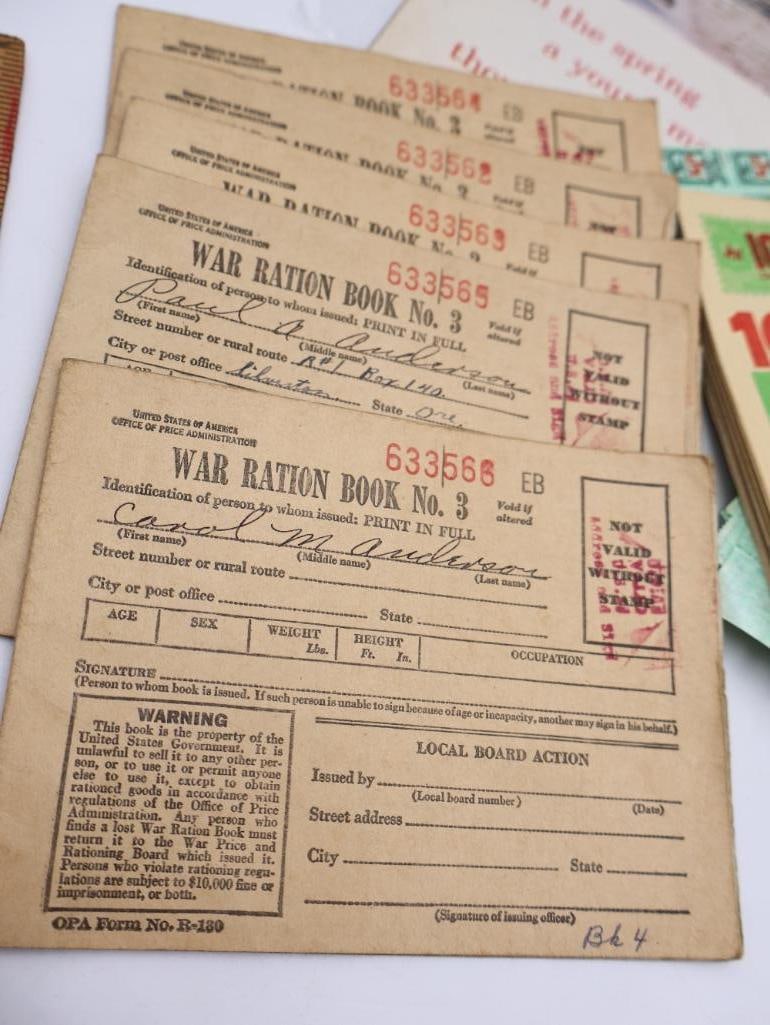 in the spring
a young
United States of America
Office of Price Administration
633564 EB
RATION BOOK No. 3
United States of America
Office of Price Administration
633562 EB
RATION BOOK No. 3
NOT
United States of America
Office of Price Administration
633563 EB
WAR RATION BOOK No. 3
Void if
NOT
United States of America
Office of Price Administration
633565 EB
WAR RATION BOOK No. 3
Void if
altered
Identification of person to whom issued: PRINT IN FULL
Paul A Anderson
(First name) (Middle name) (Last name)
Street number or rural route R#1 Box 140
City or post office Silverton State Ore.
AGE
NOT
VALID
WITHOUT
STAMP
United States of America
Office of Price Administration
633566 EB
WAR RATION BOOK No. 3
Void if
altered
Identification of person to whom issued: PRINT IN FULL
Carol M Anderson
(First name) (Middle name) (Last name)
Street number or rural route
City or post office State
AGE SEX WEIGHT Lbs. HEIGHT Ft. In. OCCUPATION
NOT
VALID
WITHOUT
STAMP
Signature
(Person to whom book is issued. If such person is unable to sign because of age or incapacity, another may sign in his behalf.)
WARNING
This book is the property of the
United States Government. It is
unlawful to sell it to any other per-
son, or to use it or permit anyone
else to use it, except to obtain
rationed goods in accordance with
regulations of the Office of Price
Administration. Any person who
finds a lost War Ration Book must
return it to the War Price and
Rationing Board which issued it.
Persons who violate rationing regu-
lations are subject to $10,000 fine or
imprisonment, or both.
OPA Form No. R-130
LOCAL BOARD ACTION
Issued by
(Local board number) (Date)
Street address
City State
(Signature of issuing officer)
Bk 4